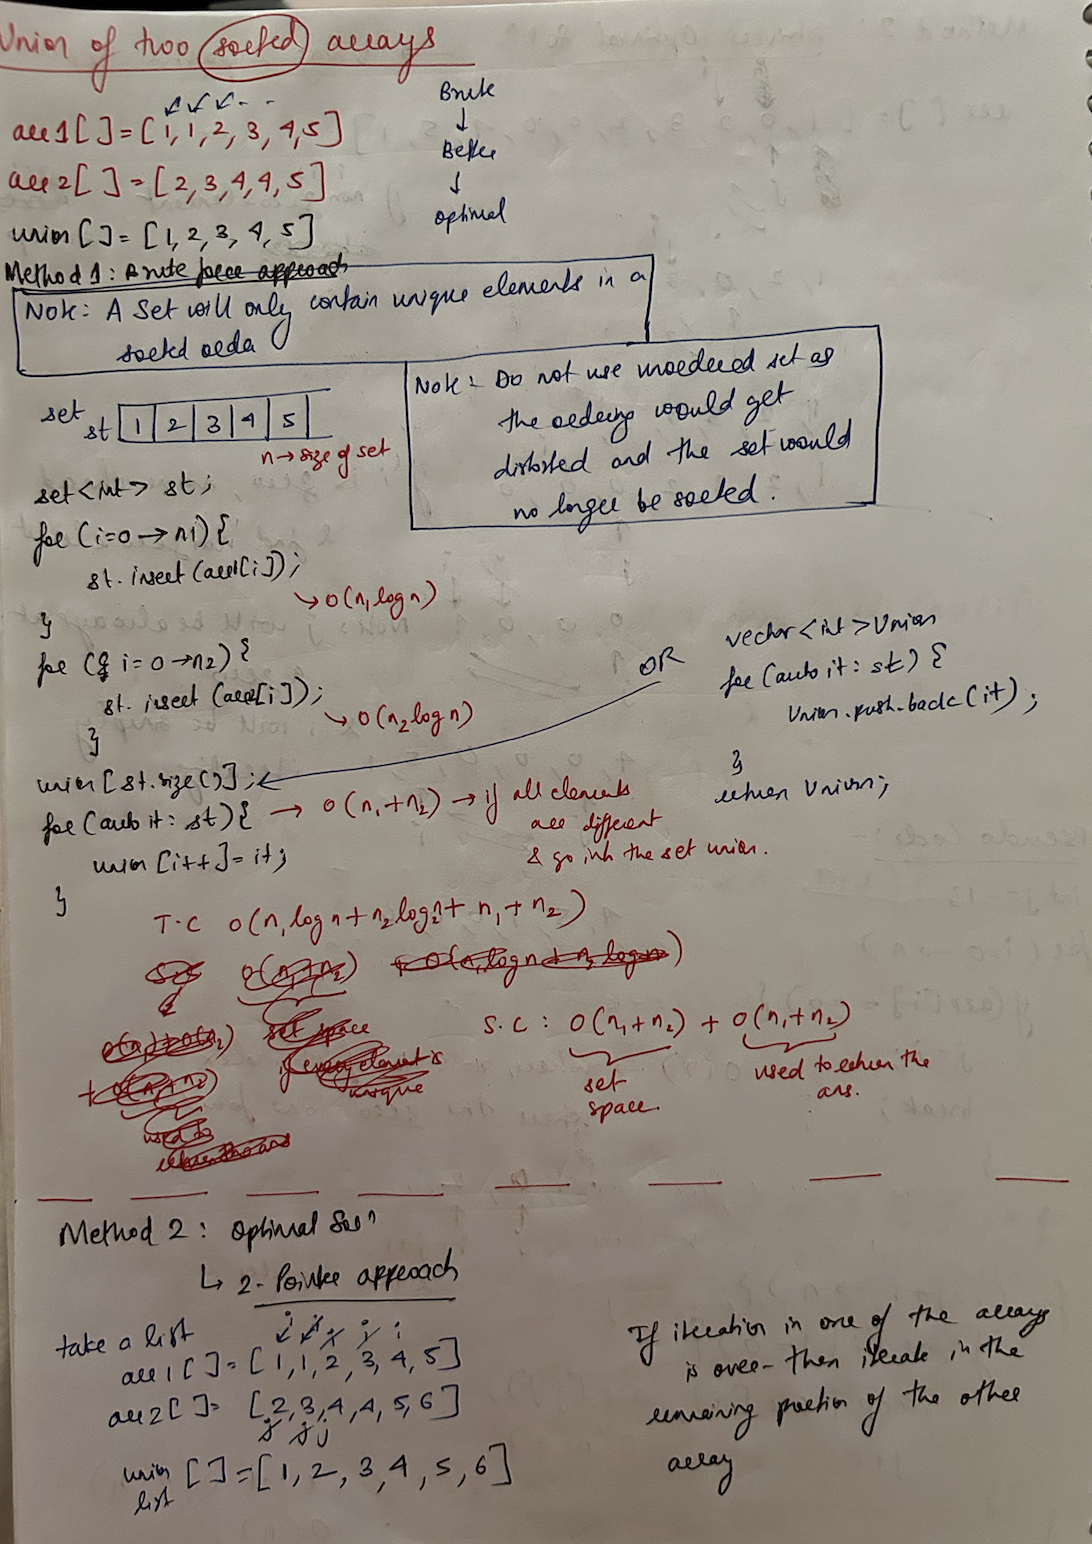 Union of two sorted arrays
arr1[] = [1, 1, 2, 3, 4, 5]
arr2[] = [2, 3, 4, 4, 5]
union[] = [1, 2, 3, 4, 5]
Brute
↓
Better
↓
optimal
Method 1: Brute force approach
Note: A Set will only contain unique elements in a
sorted order
Note: Do not use unordered set as
the ordering would get
distorted and the set would
no longer be sorted.
set st 1 2 3 4 5
n → size of set
set<int> st;
for (i=0 → n1) {
st. insert (arr1[i]);
→ O(n1 log n)
}
for (i=0 → n2) {
st. insert (arr2[i]);
→ O(n2 log n)
}
union [st.size()];
for (auto it : st) { → O(n1+n2) → if all elements
are different
& go into the set union.
union [i++] = it;
}
OR
vector<int> Union
for (auto it : st) {
Union.push-back (it);
}
return Union;
T.C O(n1 log n + n2 log n + n1 + n2)
O(n1+n2)
set space
if every element is
unique
used to
S.C : O(n1+n2) + O(n1+n2)
set
space.
used to return the
ans.
Method 2: Optimal Solⁿ
↳ 2-Pointer approach
take a list
i i i i i
arr1[] = [1, 1, 2, 3, 4, 5]
arr2[] = [2, 3, 4, 4, 5, 6]
j j j
union list [] = [1, 2, 3, 4, 5, 6]
If iteration in one of the arrays
is over - then iterate in the
remaining portion of the other
array